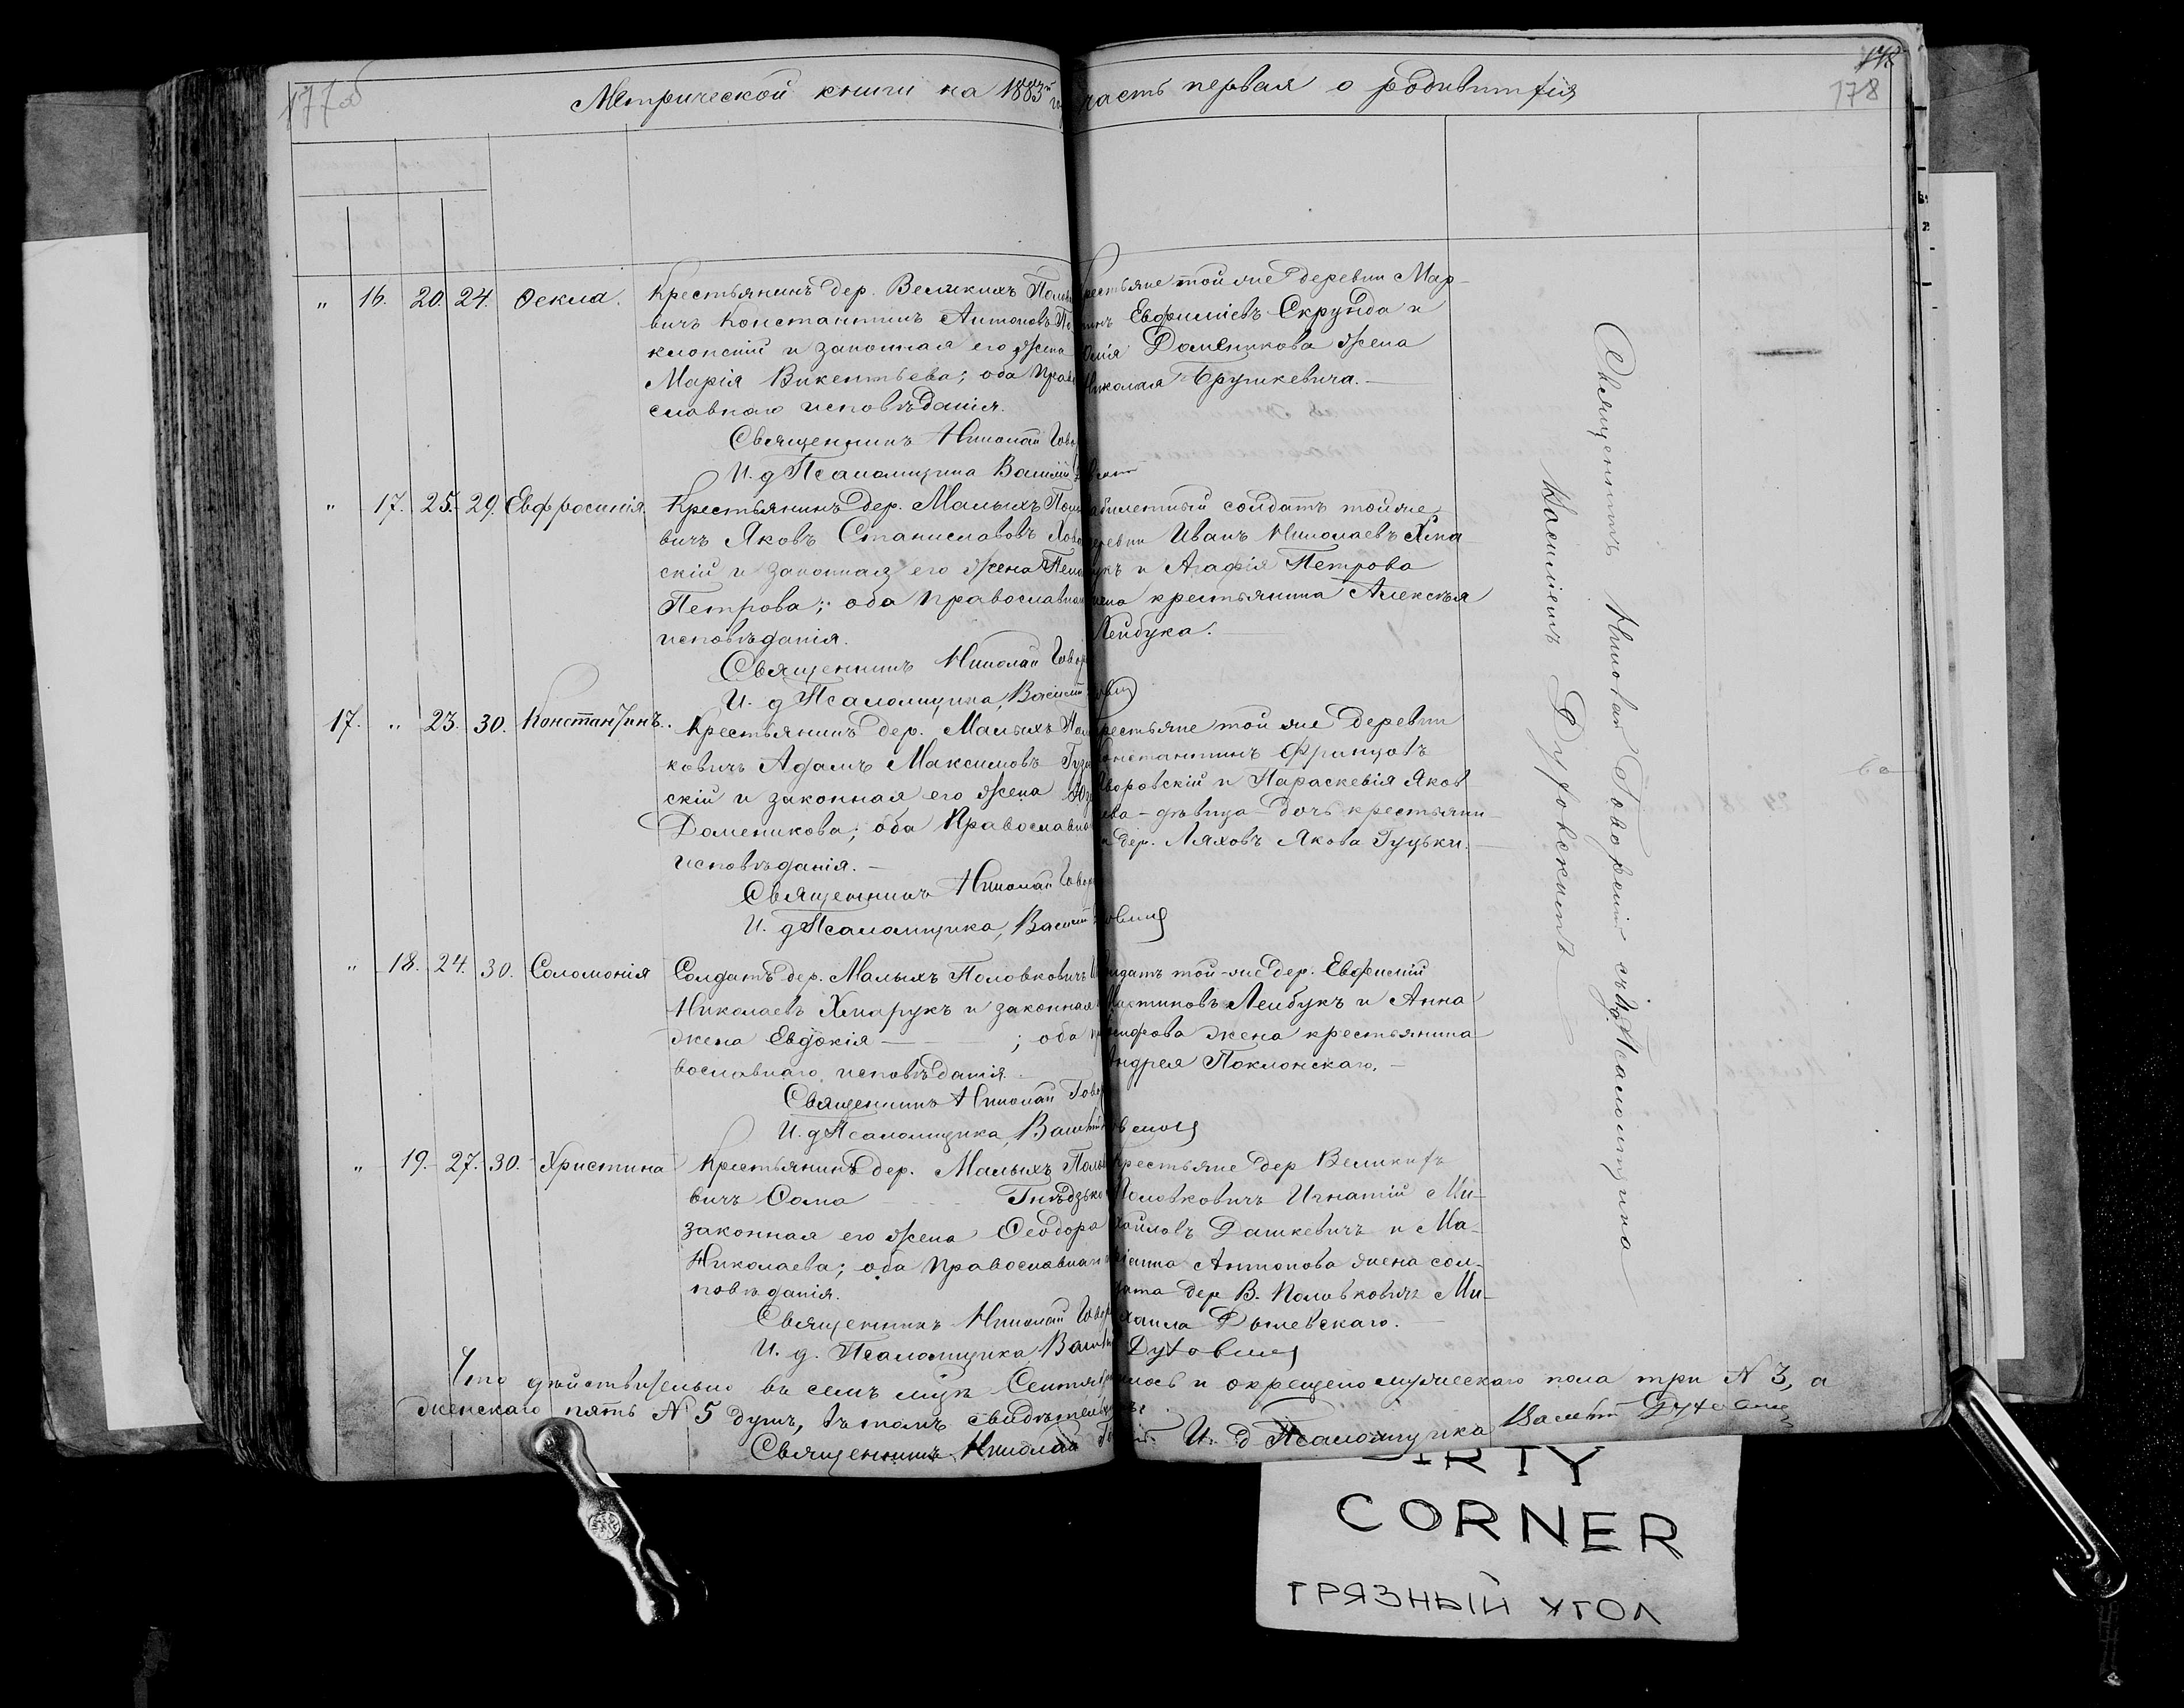 177об
178
178
Метрической книги на 1883й го часть первая о родившихся
" 16. 20. 24. Ѳекла.
Крестьянинъ дер. Великихъ Полов
вичъ Константинъ Антоновъ По
клонскій и законная его жена
Марія Викентьева; оба право
славнаго исповѣданія.
Священникъ Николай Говор
И. д Псаломщика Василій
крестьяне той же деревни Мар-
тинъ Евфиміевъ Скрунда и
Доменикова жена
Николая Брушкевича.
" 17. 25. 29. Евфросинія.
Крестьянинъ дер. Малыхъ Поло
вичъ Яковъ Станиславовъ Яво
скій и законная его жена Пела
Петрова; оба православнаго
исповѣданія.
Священникъ Николай Говор
И. д Псаломщика, Василій
билетный солдатъ той же
деревни Иванъ Николаевъ Хма
рукъ и Агафія Петрова
жена крестьянина Алексѣя
Лейбука.
17. " 23. 30. Константинъ.
Крестьянинъ дер. Малыхъ Пол
ковичъ Адамъ Максимовъ Гуз
скій и законная его жена Юз
Доменикова; оба православнаго
исповѣданія.
Священникъ Николай Говор
И. д Псаломщика, Василій
крестьяне той же деревни
Константинъ Францовъ
Яворовскій и Параскевія Яков
лева - дѣвица - дочь крестьяни
на дер. Ляховъ Якова Гуцьки.
" 18. 24. 30. Соломонія
Солдатъ дер. Малыхъ Половковичъ
Николаевъ Хмарукъ и законная
жена Евдокія ; оба пра
вославнаго исповѣданія.
Священникъ Николай Говор
И. д Псаломщика, Василій
Солдатъ той-же дер. Евфимій
Мартиновъ Лейбукъ и Анна
жена крестьянина
Андрея Поклонскаго.
" 19. 27. 30. Христина
Крестьянинъ дер. Малыхъ Полов
вичъ Ѳома Гнѣдзько
законная его жена Ѳеодора
Николаева; оба православнаго ис
повѣданія.
Священникъ Николай Говор
И. д. Псаломщика Василій Духовскій
Крестьяне дер Великихъ
Половковичъ Игнатій Ми-
хайловъ Дашкевичъ и Ма-
ріанна Антонова жена сол-
дата дер В. Половковичъ Ми-
хаила Дылевскаго.
Священникъ Николай Говорскій съ и.д. Псаломщика
Василіемъ Духовскимъ
Что дѣйствительно въ семъ мцѣ Сентябрѣ родилось и окрещено мужескаго пола три № 3, а
женскаго пять № 5 душъ, въ томъ свидѣтельствуемъ
Священникъ Николай И. д Псаломщика Василій Духовскій
DIRTY
CORNER
ГРЯЗНЫЙ УГОЛ